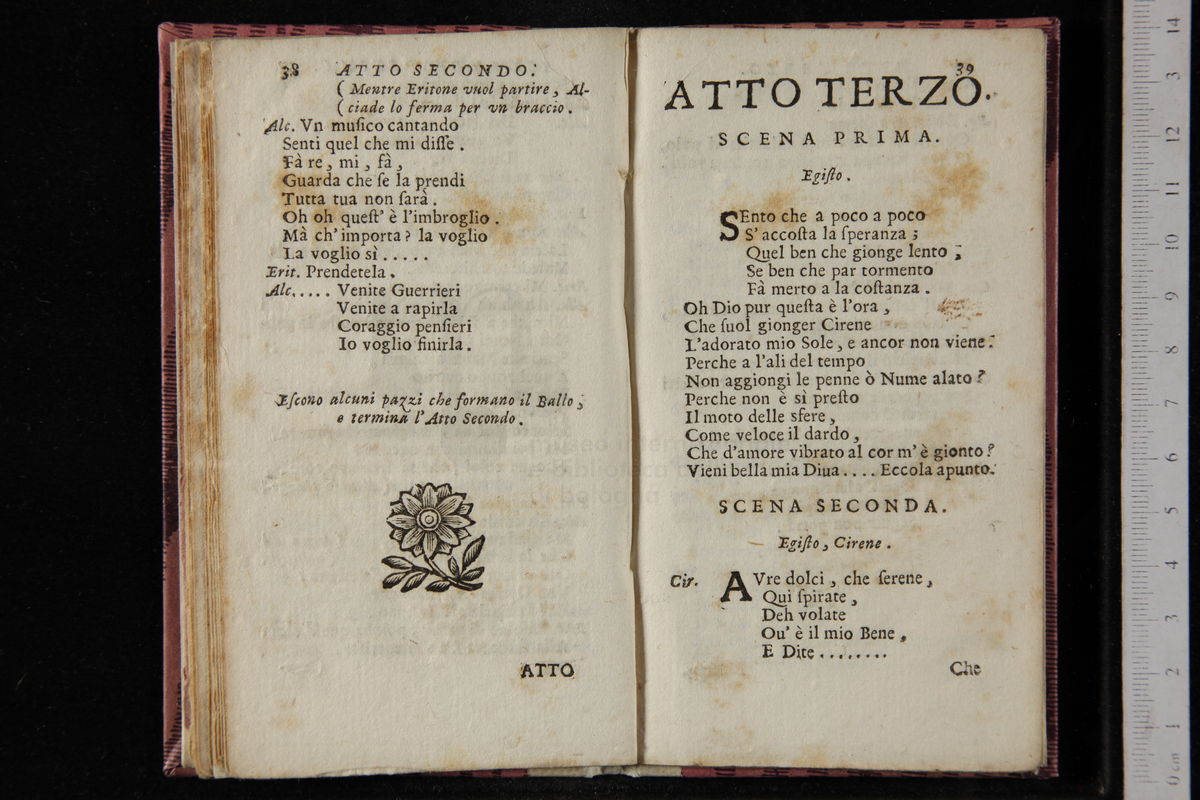 38 ATTO SECONDO.
( Mentre Eritone vuol partire, Al-
( ciade lo ferma per vn braccio.
Alc. Vn muſico cantando
Senti quel che mi diſſe.
Fà re, mi, fà,
Guarda che ſe la prendi
Tutta tua non ſarà.
Oh oh queſt' è l'imbroglio.
Mà ch'importa? la voglio
La voglio sì.....
Erit. Prendetela.
Alc..... Venite Guerrieri
Venite a rapirla
Coraggio penſieri
Io voglio finirla.
Eſcono alcuni pazzi che formano il Ballo,
e termina l'Atto Secondo.
ATTO
39
ATTO TERZO.
SCENA PRIMA.
Egiſto.
SEnto che a poco a poco
S'accoſta la ſperanza;
Quel ben che gionge lento;
Se ben che par tormento
Fà merto a la coſtanza.
Oh Dio pur queſta è l'ora,
Che ſuol gionger Cirene
L'adorato mio Sole, e ancor non viene.
Perche a l'ali del tempo
Non aggiongi le penne ò Nume alato?
Perche non è sì preſto
Il moto delle sfere,
Come veloce il dardo,
Che d'amore vibrato al cor m'è gionto?
Vieni bella mia Diua.... Eccola apunto.
SCENA SECONDA.
Egiſto, Cirene.
Cir. AVre dolci, che ſerene,
Qui ſpirate,
Deh volate
Ou' è il mio Bene,
E Dite........
Che
14
3
12
11
10
9
8
7
6
5
4
3
2
1
0 cm